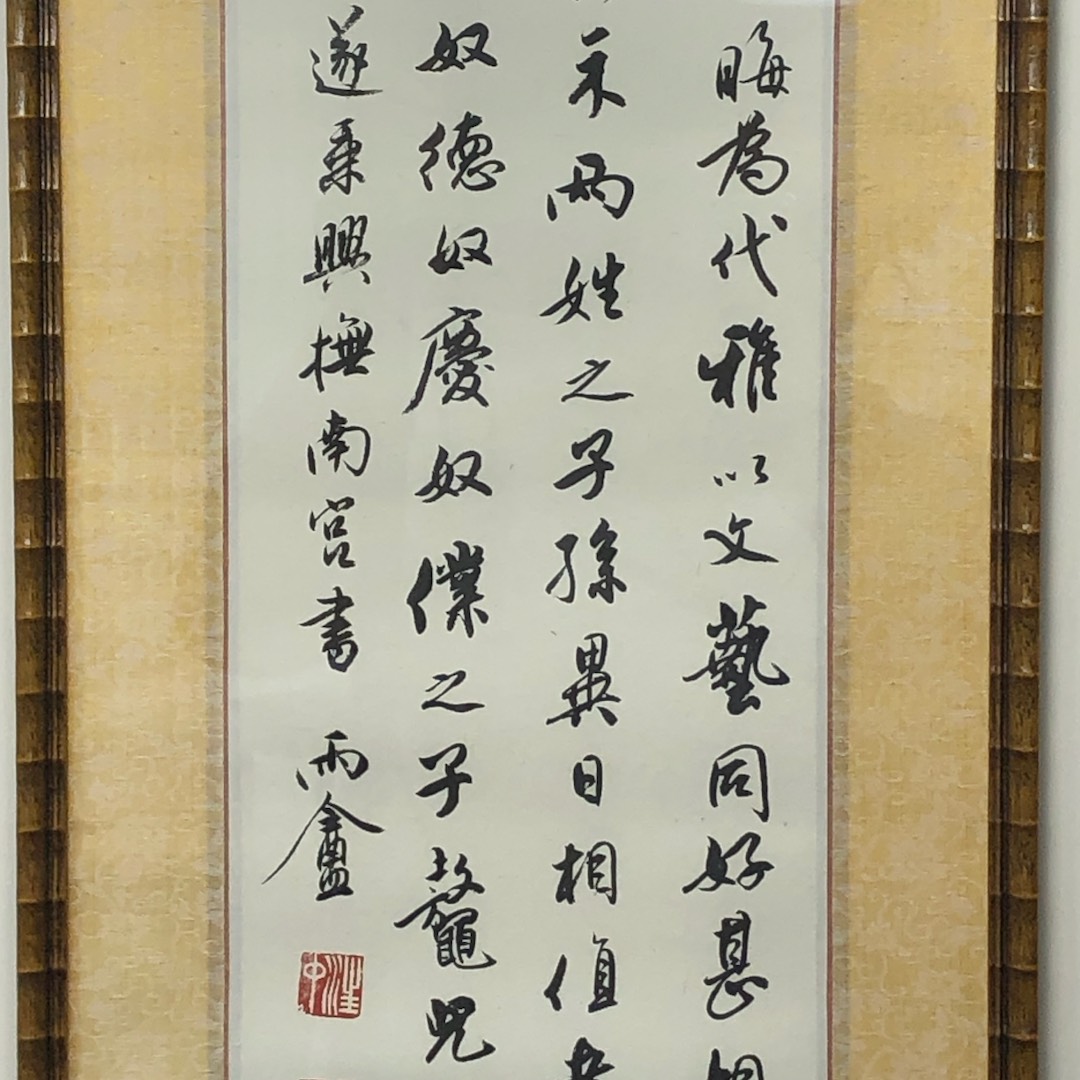 晦為代雅以文藝同好甚
米兩姓之子孫異日相值
奴德奴慶奴僕之子鼇兒
遂乘興撫南宮書 雨盦
汪中